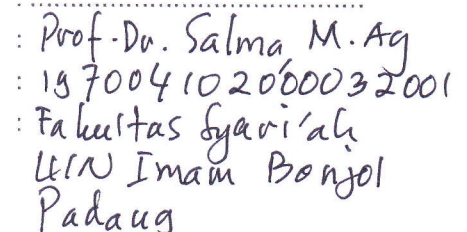 : Prof. Dr. Salma, M. Ag
: 197004102000032001
: Fakultas Syari'ah
UIN Imam Bonjol
Padang